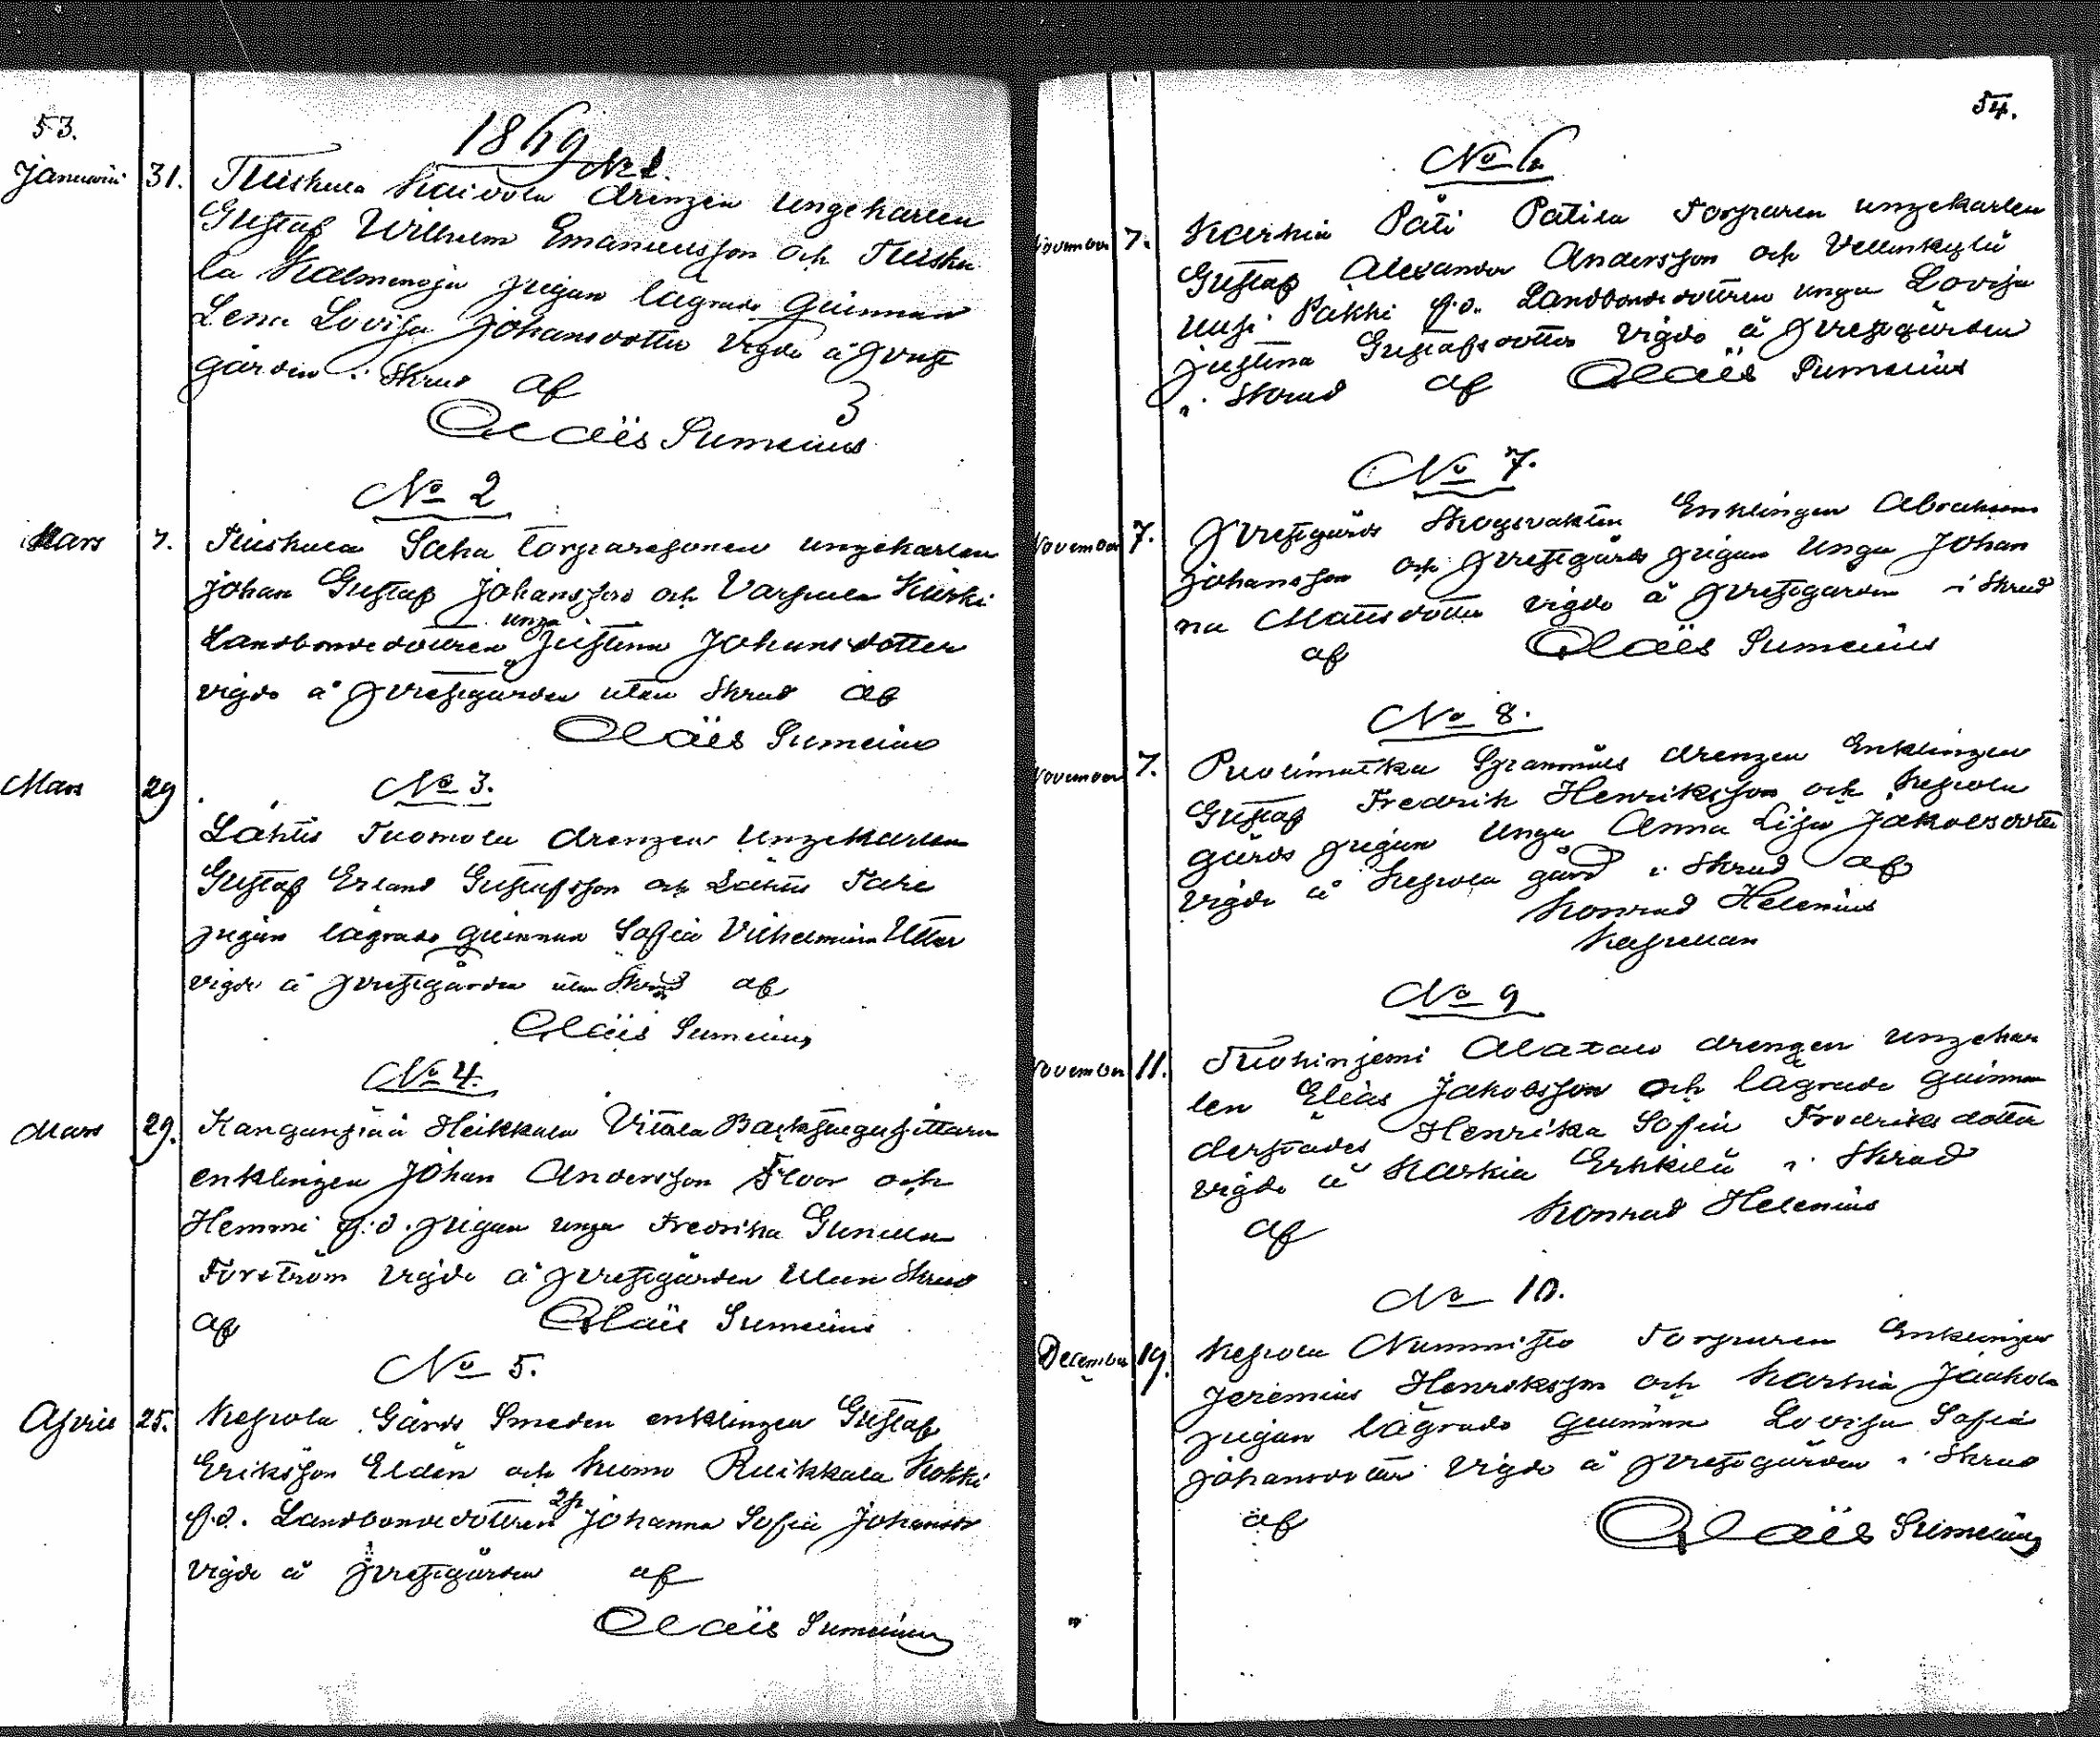 53.
1869
No 1.
Januari 31. Tuiskula Kaivola drengen ungekarlen
Gustaf Wilhelm Emanuelsson och Tuisku
la Kalmenoja pigan lägrade quinnan
Lena Lovisa Johansdotter vigde å prest
gården i Skrud af
Claës Sumelius
No 2
Mars 7. Tuiskula Saha torparesonen ungekarlen
Johan Gustaf Johansson och Varpula Kurki
unga
Landbondedottren Justina Johansdotter
vigde å prestgården utan Skrud af
Claës Sumelius
Mars 29 No 3.
Lähtis Tuomola drengen ungekarlen
Gustaf Erland Gustafsson och Lähtis Tare
pigan lägrade quinnan Sofia Vilhelmina Utter
vigde å prestgården utan Skrud af
Claës Sumelius
No 4.
Mars 29. Kanganpää Heikkala Vitala Backstugusittaren
enklingen Johan Andersson Floor och
Hemmi f.d. pigan unga Fredrika Gunilla
Forström vigde å prestgården utan Skrud
af Claës Sumelius
No 5.
April 25. Kepola Gårds Smeden enklingen Gustaf
Eriksson Eldén och Kiomo Ruikkala Kokki
f.d. Landbondedottren Johanna Sofia Johansdr
vigde å prestgården af
Claës Sumelius
54.
No 6
November 7. Karhia Päti Patila Torparen ungekarlen
Gustaf Alexander Andersson och Vellinkylä
Uusi Pakki f.d. Landbondedottren unga Lovisa
Justina Gustafsdotter vigde å prestgården
i Skrud af Claës Sumelius
No 7.
November 7. Prestgårds Skogsvakten Enklingen Abraham
Johansson och prestgårds pigan unga Johan
na Mattsdotter vigde å prestgården i Skrud
af Claës Sumelius
No 8.
November 7. Puolimatka Spannäs drengen Enklingen
Gustaf Fredrik Henriksson och Kepola
gårds pigan unga Anna Lisa Jakobsdotter
vigde å Kepola gård i Skrud af
Konrad Helenius
Kapellan
No 9
November 11. Tuohiniemi Alatalo drengen ungekar
len Elias Jakobsson och lägrade quinnan
derstädes Henrika Sofia Fredriksdotter
vigde å Karhia Erkkilä i Skrud
af Konrad Helenius
No 10.
December 19. Kepola Nummisto Torparen Enklingen
Jeremias Henriksson och Karhia Jaakola
pigan lägrade quinnan Lovisa Sofia
Johansdotter vigde å prestgården i Skrud
af Claës Sumelius